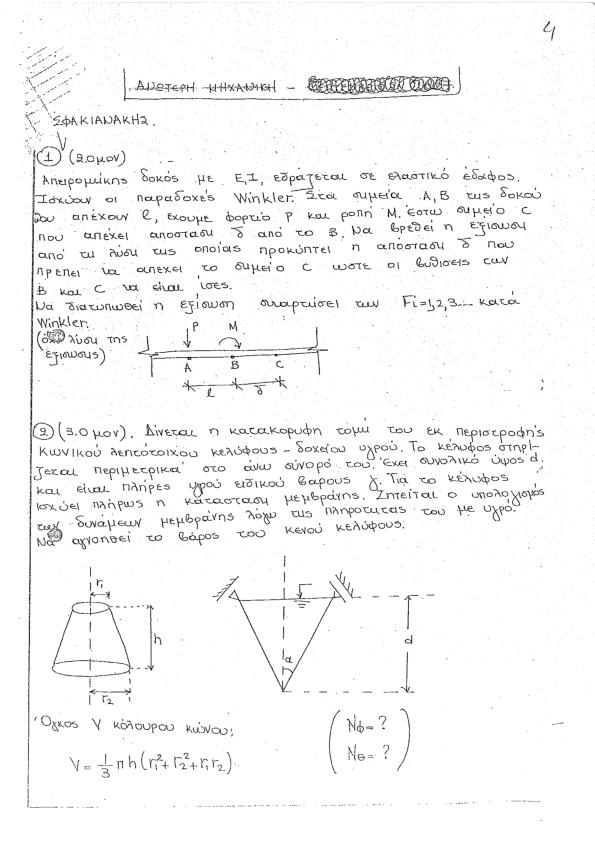 4
ΑΝΩΤΕΡΗ ΜΗΧΑΝΙΚΗ -
ΣΦΑΚΙΑΝΑΚΗΣ.
① (2.0 μον)
Απειρομήκης δοκός με E,I, εδράζεται σε ελαστικό έδαφος.
Ισχύουν οι παραδοχές Winkler. Στα σημεία A,B της δοκού
που απέχουν l, έχουμε φορτίο P και ροπή M. Έστω σημείο C
που απέχει απόσταση δ από το B. Να βρεθεί η εξίσωση
από τη λύση της οποίας προκύπτει η απόσταση δ που
πρέπει να απέχει το σημείο C ώστε οι βυθίσεις των
B και C να είναι ίσες.
Να διατυπωθεί η εξίσωση συναρτήσει των Fi=1,2,3... κατά
Winkler.
(όχι λύση της
εξίσωσης)
P M
A B C
l δ
② (3.0 μον). Δίνεται η κατακόρυφη τομή του εκ περιστροφής
κωνικού λεπτότοιχου κελύφους - δοχείου υγρού. Το κέλυφος στηρί-
ζεται περιμετρικά στο άνω σύνορό του. Έχει συνολικό ύψος d.
και είναι πλήρες υγρού ειδικού βάρους γ. Για το κέλυφος
ισχύει πλήρως η κατάσταση μεμβράνης. Ζητείται ο υπολογισμός
των δυνάμεων μεμβράνης λόγω της πληρότητας του με υγρό.
Να αγνοηθεί το βάρος του κενού κελύφους.
r₁
h
r₂
α
d
Όγκος V κόλουρου κώνου:
V = 1/3 π h (r₁² + r₂² + r₁r₂).
Nφ = ?
Nθ = ?